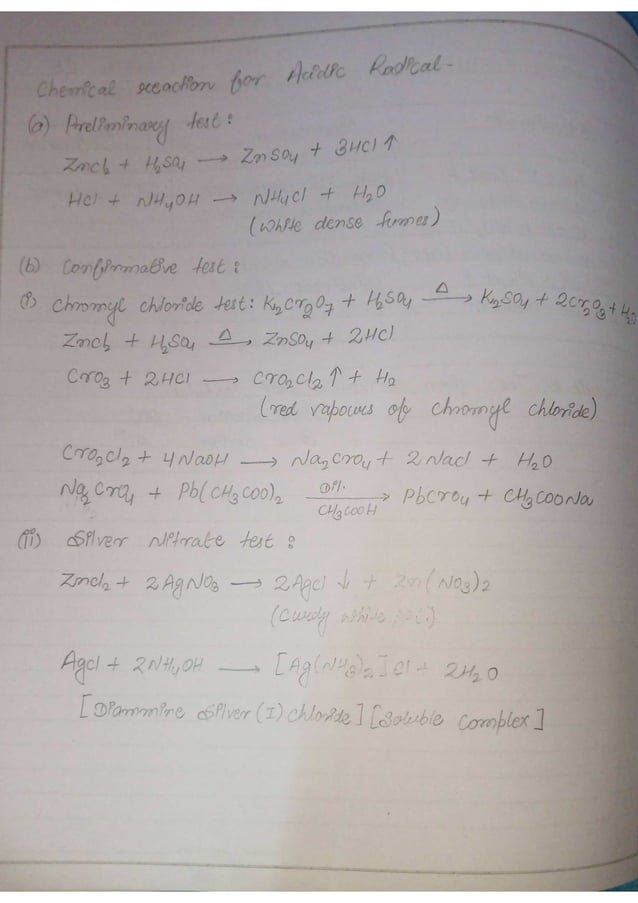 Chemical reaction for Acidic Radical-
(a) Preliminary test:
ZnCl2 + H2SO4 → ZnSO4 + 3HCl ↑
HCl + NH4OH → NH4Cl + H2O
(White dense fumes)
(b) Confirmative test:
(i) Chromyl chloride test: K2Cr2O7 + H2SO4 Δ→ K2SO4 + 2Cr2O3 + H2O
ZnCl2 + H2SO4 Δ→ ZnSO4 + 2HCl
CrO3 + 2HCl → CrO2Cl2 ↑ + H2
(red vapours of chromyl chloride)
CrO2Cl2 + 4NaOH → Na2CrO4 + 2NaCl + H2O
Na2CrO4 + Pb(CH3COO)2 Dil. CH3COOH→ PbCrO4 + CH3COONa
(ii) Silver Nitrate test:
ZnCl2 + 2AgNO3 → 2AgCl ↓ + Zn(NO3)2
(Curdy white ppt.)
AgCl + 2NH4OH → [Ag(NH3)2]Cl + 2H2O
[Diammine Silver(I) chloride] [Soluble Complex]